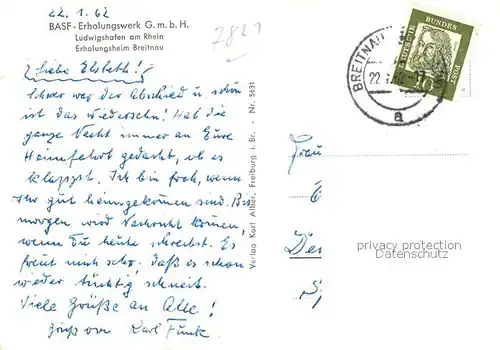 22.1.62
BASF-Erholungswerk G.m.b.H.
Ludwigshafen am Rhein
Erholungsheim Breitnau
7821
Liebe Elsbeth!
Schwer war der Abschied u. schön
ist das Wiedersehn! Hab die
ganze Nacht immer an Eure
Heimfahrt gedacht, ob es
klappt. Ich bin froh, wenn
Ihr gut heimgekommen sind. Bis
morgen wird Nachricht kommen,
wenn Du heute schreibst. Es
freut mich scho. daß es schon
wieder tüchtig schneit.
Viele Grüße an Alle!
Karl Funk
Verlag Karl Alber, Freiburg i. Br. - Nr. 5631
DEUTSCHE BUNDESPOST
BREITNAU
22.
a
Frau
privacy protection
Datenschutz